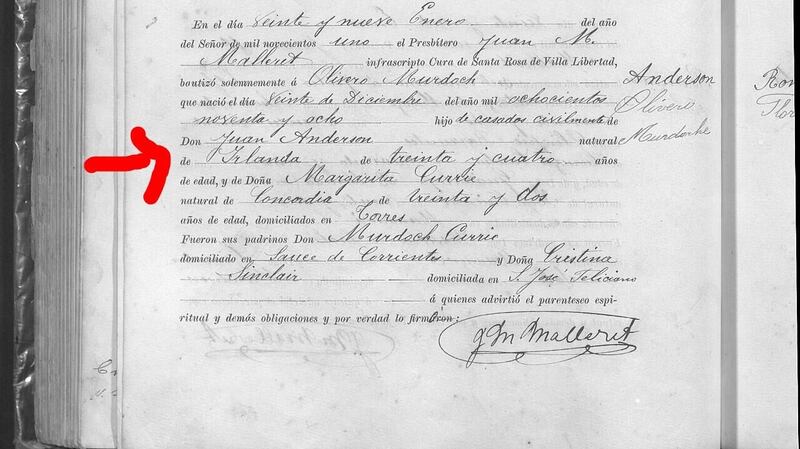 En el día veinte y nueve Enero del año
del Señor de mil novecientos uno el Presbítero Juan M.
Malleret infrascripto Cura de Santa Rosa de Villa Libertad,
bautizó solemnemente á Olivero Murdoch
que nació el día veinte de Diciembre del año mil ochocientos
noventa y ocho hijo de casados civilmente de
Don Juan Anderson natural
de Irlanda de treinta y cuatro años
de edad, y de Doña Margarita Currie
natural de Concordia de treinta y dos
años de edad, domiciliados en Torres
Fueron sus padrinos Don Murdoch Currie
domiciliado en Sauce de Corrientes y Doña Cristina
Sinclair domiciliada en S. José Feliciano
á quienes advirtió el parentesco espi-
ritual y demás obligaciones y por verdad lo firmó:
J M Malleret
Anderson
Olivero
Murdoche